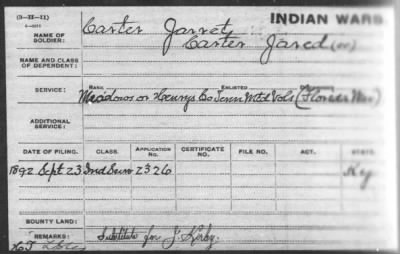 (3-H-11)
INDIAN WARS
NAME OF SOLDIER: Carter Jarret
Carter Jared (or)
NAME AND CLASS OF DEPENDENT:
SERVICE: RANK ENLISTED
Meadows or Henrys Co Tenn Mtd Vols (Florida War)
ADDITIONAL SERVICE:
DATE OF FILING. CLASS. APPLICATION NO. CERTIFICATE NO. FILE NO. ACT. STATE
1892 Sept 23 Ind Surv 2326 Ky
BOUNTY LAND:
REMARKS: Substitute for J. Kirby.